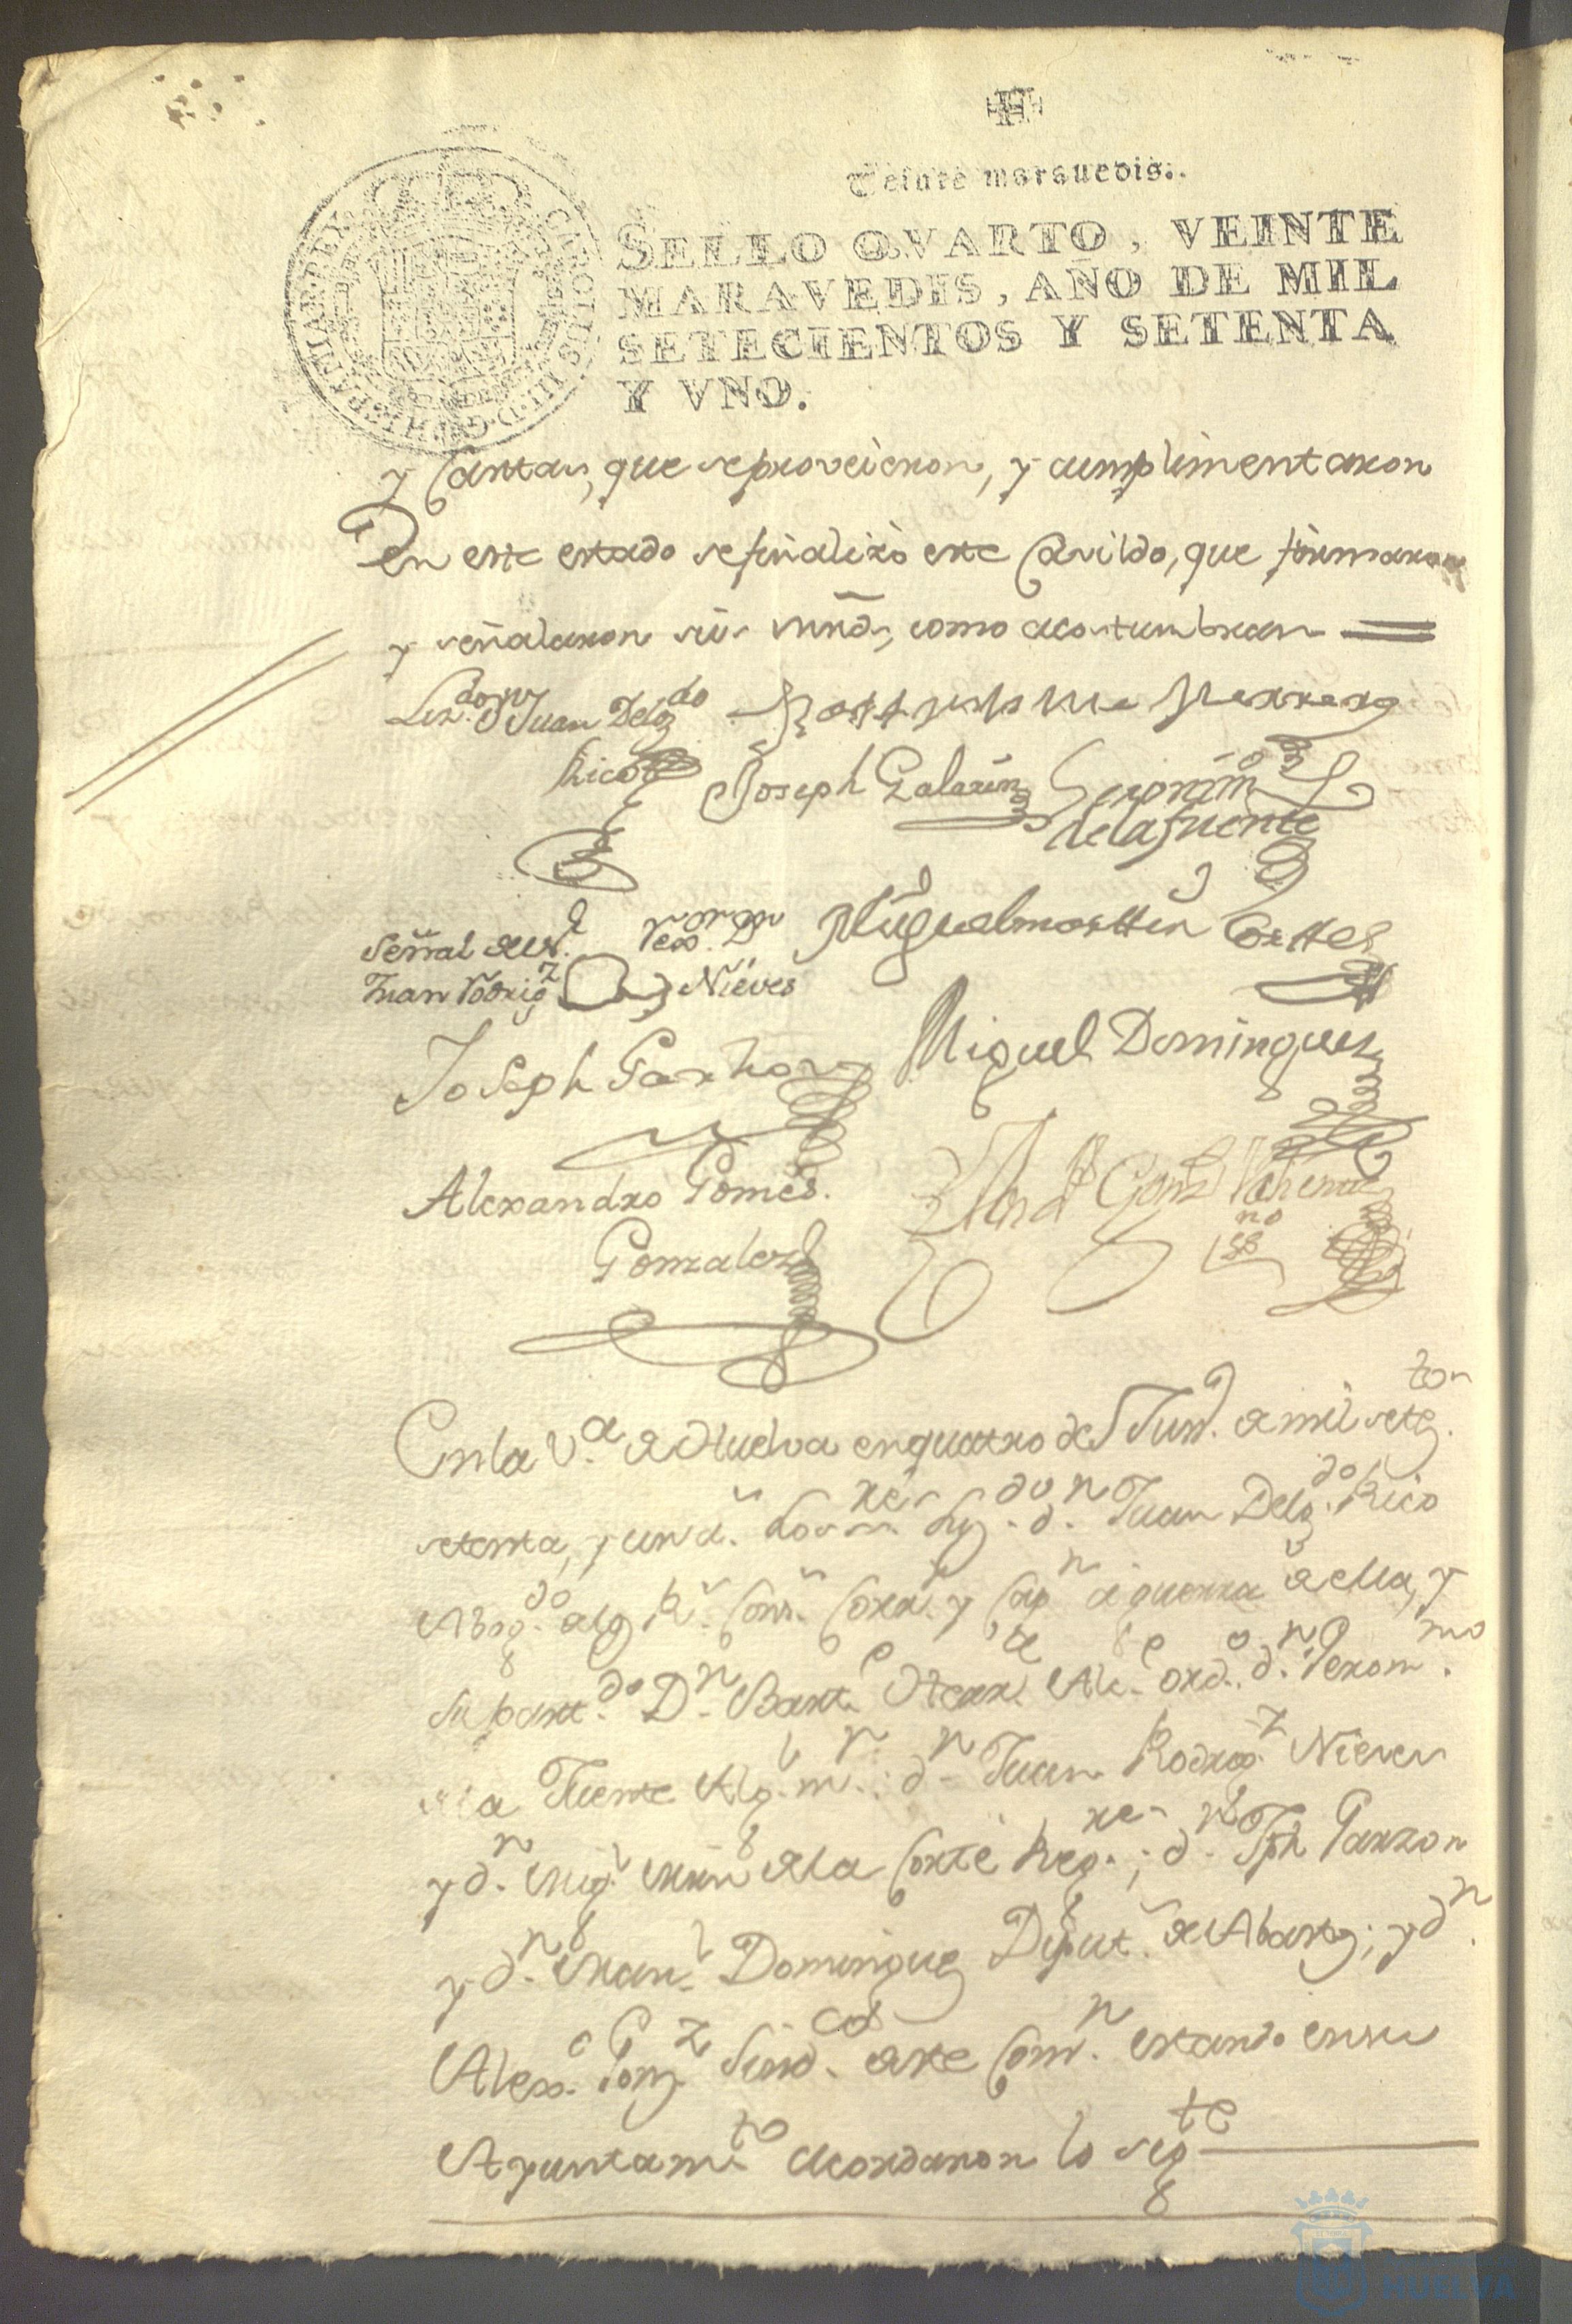 Veinte marauedis.
SELLO QVARTO, VEINTE
MARAVEDIS, AÑO DE MIL
SETECIENTOS Y SETENTA
Y VNO.
CAROLUS III D G HISPANIAR REX
y Cartas, que se proveieron, y cumplimentaron
En este estado se finalizò este Cavildo, que firmaron
y señalaron sus mrds, como acostumbran
Lizdo Dn Juan Delgdo
Rico
Joseph Galarin
Geronimo
de la fuente
Señal del
Rexor Dn
Juan Rodrigz
Nieves
Miguel martin
Cortes
Joseph Garzon
Miguel Domingues
Alexandro Gomes.
Gonzales
En la Va de Huelva en quatro de Jun. de mil setezos
setenta, y un a. Los res Lizdo dn Juan Delgdo Rico
Abogdo de los Rs Cons. Corr. y Capn a guerra de ella, y
su partdo Dn Bartme Alce ordo dn Geronmo
de la Fuente Algl mr. dn Juan Rodrigz Nieves
y dn Migl Mrn de la Corte Regres; dn Jph Garzon
y dn Manl Dominguez Diput. de Abastos; y dn
Alexo Gonz Sindco de este Comn estando en su
Ayuntamto acordaron lo sigte
HUELVA